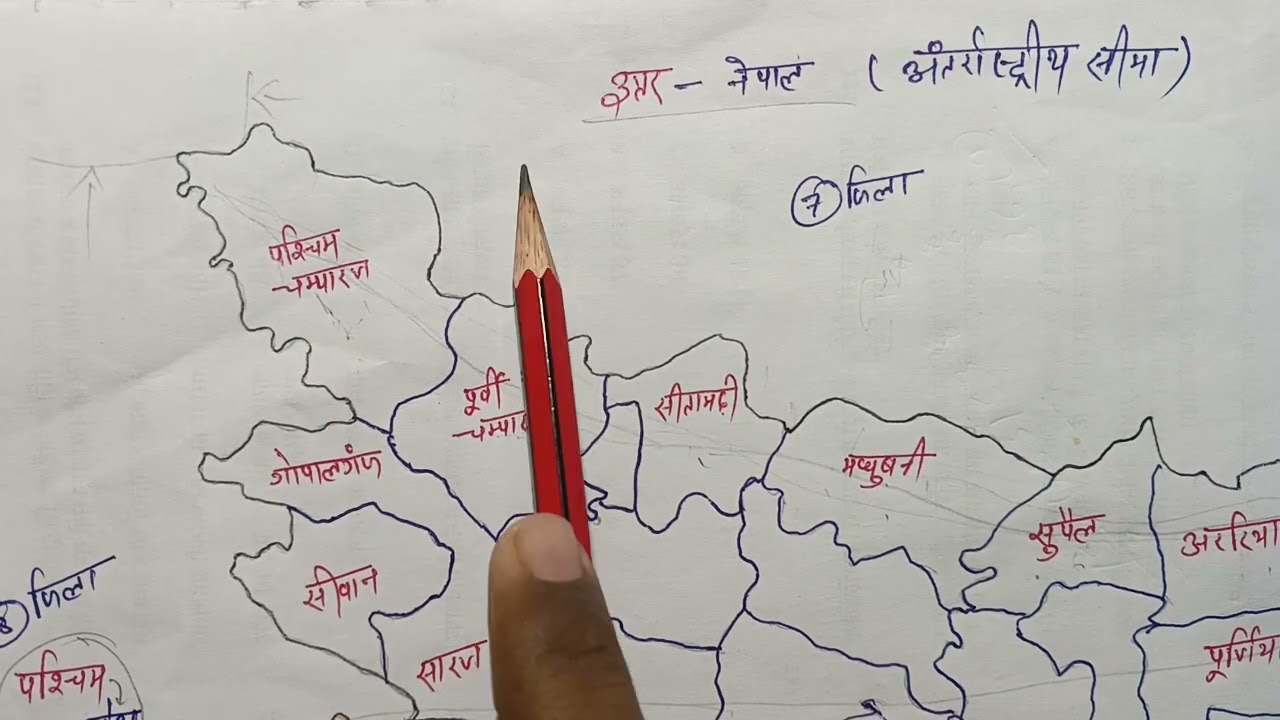 उत्तर – नेपाल (अंतर्राष्ट्रीय सीमा)
७ जिला
पश्चिम
चम्पारण
पूर्वी
चम्पार
सीतामढ़ी
गोपालगंज
मधुबनी
सुपैल
अररिया
सीवान
8 जिला
सारण
पूर्णिय
पश्चिम